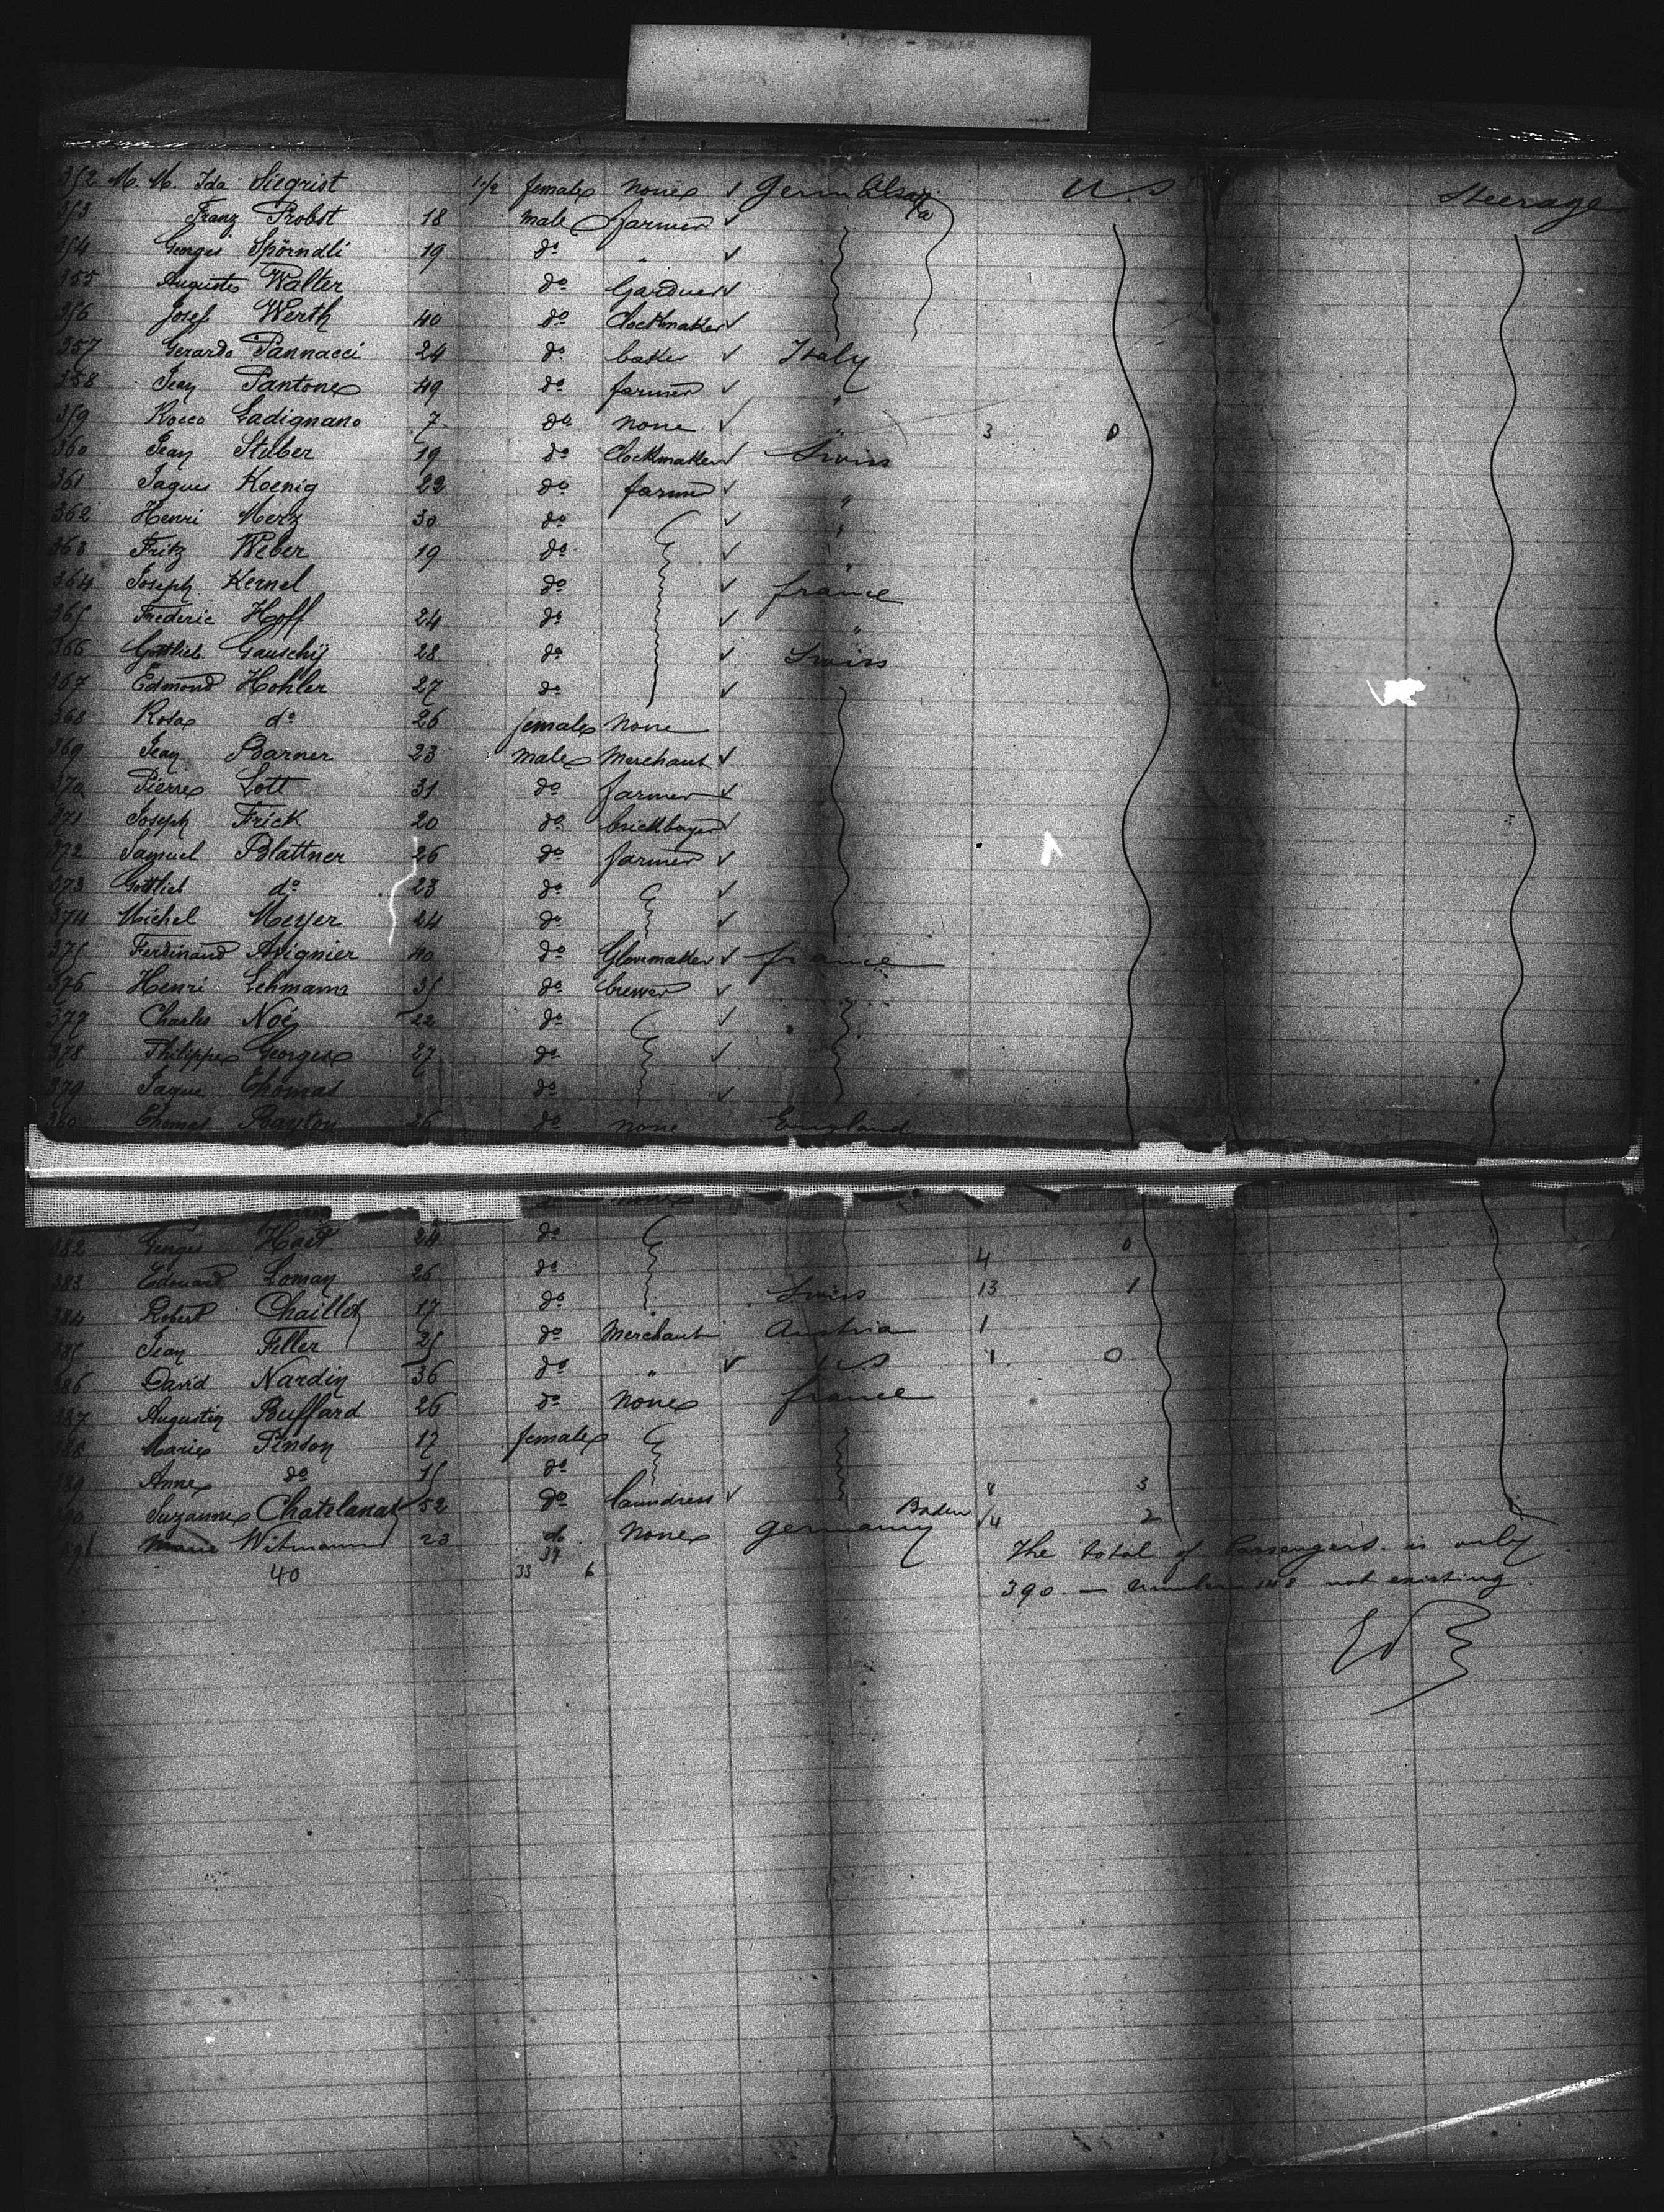 352 M. M. Ida Siegrist 1/2 female none ✓ Germ Alsatia U.S Steerage
353 Franz Probst 18 male farmer ✓
354 Georges Spörndli 19 do " ✓
355 Auguste Walter do Gardner ✓
356 Josef Werth 40 do Clockmaker ✓
357 Gerardo Pannacci 24 do baker ✓ Italy
358 Jean Pantone 49 do farmer ✓ "
359 Rocco Ladignano 7 do none ✓ " 3 0
360 Jean Stuber 19 do Clockmaker ✓ Swiss
361 Jaques Koenig 22 do farmer ✓ "
362 Henri Merz 30 do ✓ "
363 Fritz Weber 19 do ✓ "
364 Joseph Kernel do ✓ france
365 Frederic Hoff 24 do ✓ "
366 Gottlieb Gauschij 28 do ✓ Swiss
367 Edmond Hohler 27 do ✓
368 Rosa do 26 female none
369 Jean Barner 23 male Merchant ✓
370 Pierre Lott 31 do farmer ✓
371 Joseph Frick 20 do ✓
372 Samuel Blattner 26 do farmer ✓
373 Gottlieb do 23 do ✓
374 Michel Meyer 24 do ✓
375 Ferdinand Avignier 40 do Glovemaker ✓ france
376 Henri Lehmann 35 do brewer ✓
377 Charles Noé 22 do ✓
378 Philippe Georges 27 do ✓
379 Jaque Thomas do ✓
380 Thomas Bayton 26 do none England
382 Georges Hart 24 do
383 Edouard Loman 26 do 4 0
384 Robert Chaillet 17 do Swiss 13 1
385 Jean Feller 25 do Merchant Austria 1
386 David Nardin 36 do " ✓ U S 1 0
387 Augustin Buffard 26 do none france
388 Marie Pinson 17 female
389 Anne do 15 do
390 Suzanne Chatelanat 52 do laundress ✓ 8 3
391 Marie Witmann 23 do none Germany Baden 14 2
40 34 33 6
The total of Passengers is only
390 — number 148 not existing.